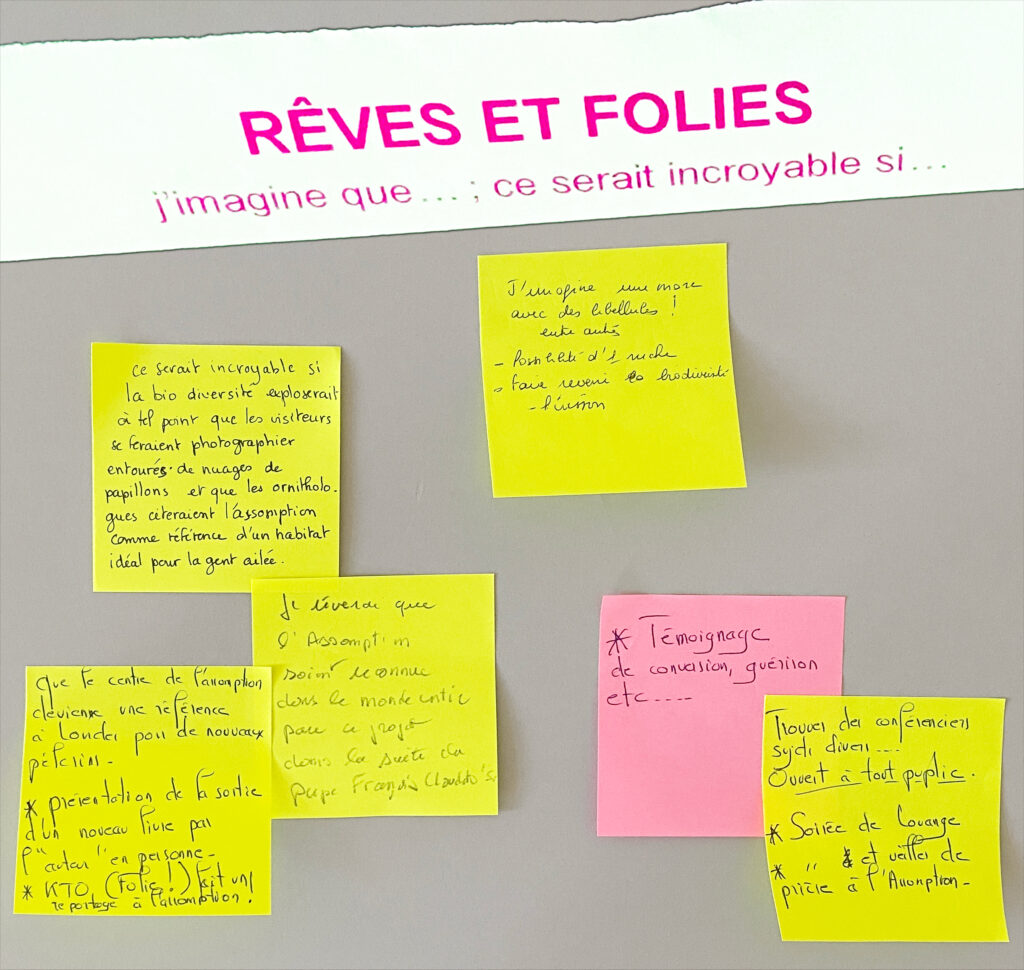 RÊVES ET FOLIES
j'imagine que... ; ce serait incroyable si...
J'imagine une mare
avec des libellules !
entre autres
- Possibilité d'1 ruche
- Faire revenir la biodiversité
ce serait incroyable si
la bio diversité exploserait
à tel point que les visiteurs
se feraient photographier
entourés de nuages de
papillons et que les ornitholo-
gues citeraient l'assomption
comme référence d'un habitat
idéal pour la gent ailée.
Je rêverai que
l'Assomption
soit reconnue
dans le monde entier
pour ce projet
dans la suite du
pape François
Que le centre de l'assomption
devienne une référence
à Lourdes pour de nouveaux
pélerins -
* présentation de la sortie
d'un nouveau livre par
l'"auteur" en personne -
* KTO (Folie !) fait un
reportage à l'assomption !
* Témoignage
de conversion, guérison
etc.....
Trouver des conférenciers
sujets divers....
Ouvert à tout public.
* Soirée de Louange
* " et veillée de
prière à l'Assomption -